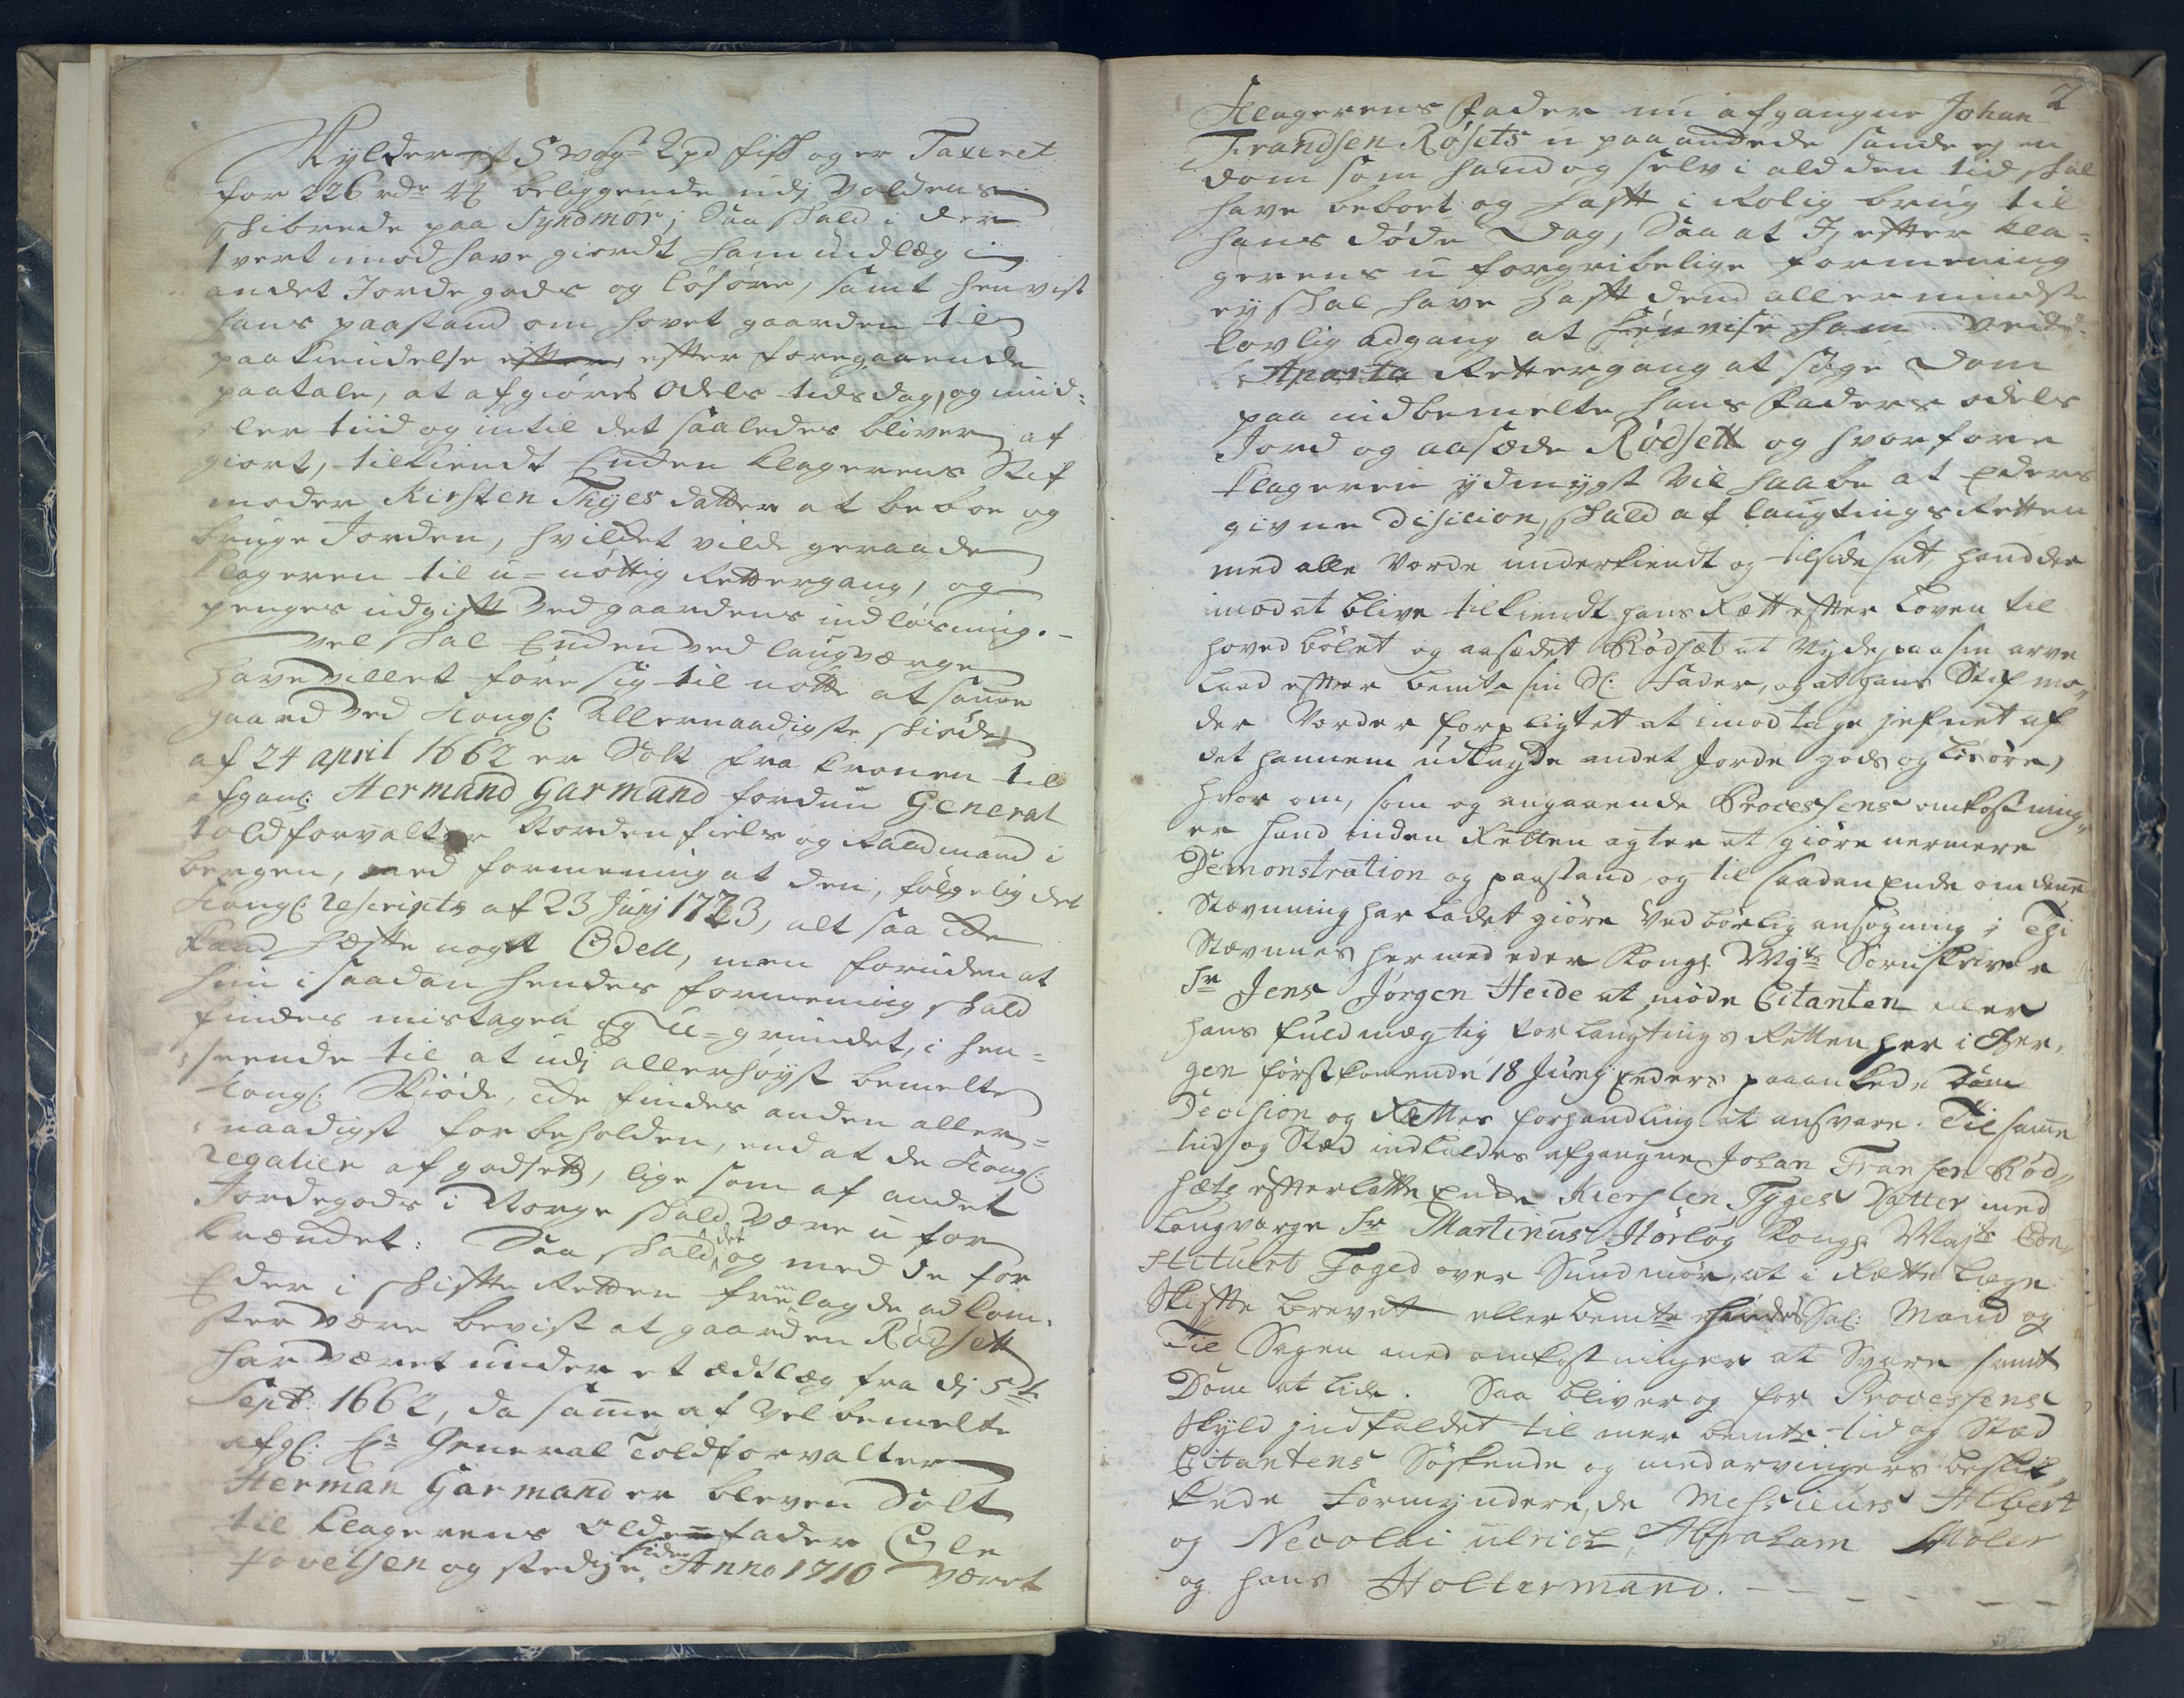 Skylder af 5 wog 2 pd fisk og er Taxeret
for 226 rdr 4 beliggende udj Voldens
skibrede paa Syndmør; Saa skald i der
tvert imod have giordt ham udlæg i
andet Jorde gods og Løsøre, samt henvist
hans paastand om hovet gaarden til
paakiendelse efter foregaaende
paatale, at afgiøres Odels tids dag, og mid-
ler tiid og intil det saaledes bliver af
giort, tilkiendt Enken klagerens Stif
moder Kirsten Thyes datter at beboe og
bruge Jorden, hvilket vilde geraade
klageren til u-nøttig Rettergang, og
penges udgift ved gaardens indløsning.-
Vel skal Enken ved laugværge
have villet føre sig til notte at samme
gaard ved Kongl: Allernaadigste skiøde
af 24 april 1662 er Solt fra Cronen til
afgang: Hermand Garmand fordum General
toldforvalter Nordenfiels og Raadmand i
bergen, med formening at den, følgelig det
Kongl: rescripts af 23 Junj 1723, alt saa icke
kand hæfte noget Odell, men foruden at
hun i saadan hendes formening skald
findes mistagen og u-grundet, i hen-
seende til at udj allerhøyst bemelte
Kongl: Skiøde, icke findes anden aller-
naadigst forbeholden, end at de Kongl:
regalier af godsett, lige som af andet
Jordegods i Norge skald være u for
krændet: Saa skald det og med de for
Eder i skifte Retten fremlagde adkom-
ster være bevist at gaarden Rødsett
har været under et ædtlæg fra dj 5te
Sept: 1662, da samme af velbemelte
afgl: Hr General Toldforvalter
Herman Garmand er bleven Solt
til klagerens Oldefader Ole
Povelsen og stedse siden Anno 1710 været
2
Klagerens fader nu afgangne Johan
Frandsen Røsets u paaankede sande ej en
dom som hand og selv i ald den tid skal
have beboet og haft i Rolig brug til
hans døde Dag, Saa at I efter kla-
gerens u forgribelige formening
ey skal have haft dend aller mindste
lovlig adgang at henvise ham ved
Aparte Rettergang at søge dom
paa midbemelte hans faders odels
Jord og aasæde Rødsett og hvorfore
klageren ydmygst vil haabe at Eders
givne Disicion, skald af laugtings Retten
med alle vorde underkiendt og tilside sat, hand der
imod at blive tilkiendt hans Rætt efter Loven til
hoved bølet og aasædet Rødsæt at Nyde paa sin arve
Laad efter bemte sin Sl: Fader, og at hans Stif mo-
der vorder forpligtet at imodtage jefnet af
det hannem udlagde andet Jorde gods og Løsøre,
hvor om, som og angaaende Processens omkostning-
er hand inden Retten agter at giøre nermere
Demonstration og paastand og til saadan Ende om denne
Stævnning har ladet giøre ved børlig ansøgning; Thi
Stævnes hermed eder Kongl. Mayts Sorenskriver
Sr Jens Jørgen Heide at møde Citanten eller
hans fuldmægtig for Laugtings Retten her i Ber-
gen førstkomende 18 Junij Eders paaankede Dom
Decision og Rættes forhandling at ansvare. Til samme
tid og Stæd indkaldes afgangne Johan Fransen Rød-
sæts efterlatte Enke Kiersten Tyges Datter med
Laugværge Sr Martinus Hørlog Kongl. Majts Con-
stituert Foged over Sundmør, at i Rætte Læge
Skifte brevett efter bemte hendes Sal: Mand og
Til Sagen med omkostninger at Svare samt
Dom at lide. Saa bliver og for Processens
Skyld indkaldet til mer bemte tid og Stæd
Citantens Søskende og medarvingers beskik-
kede Formyndere, de Messieurs Albert
og Necolai ulrich Abraham Møler
og hans Holtermand. - - - - -